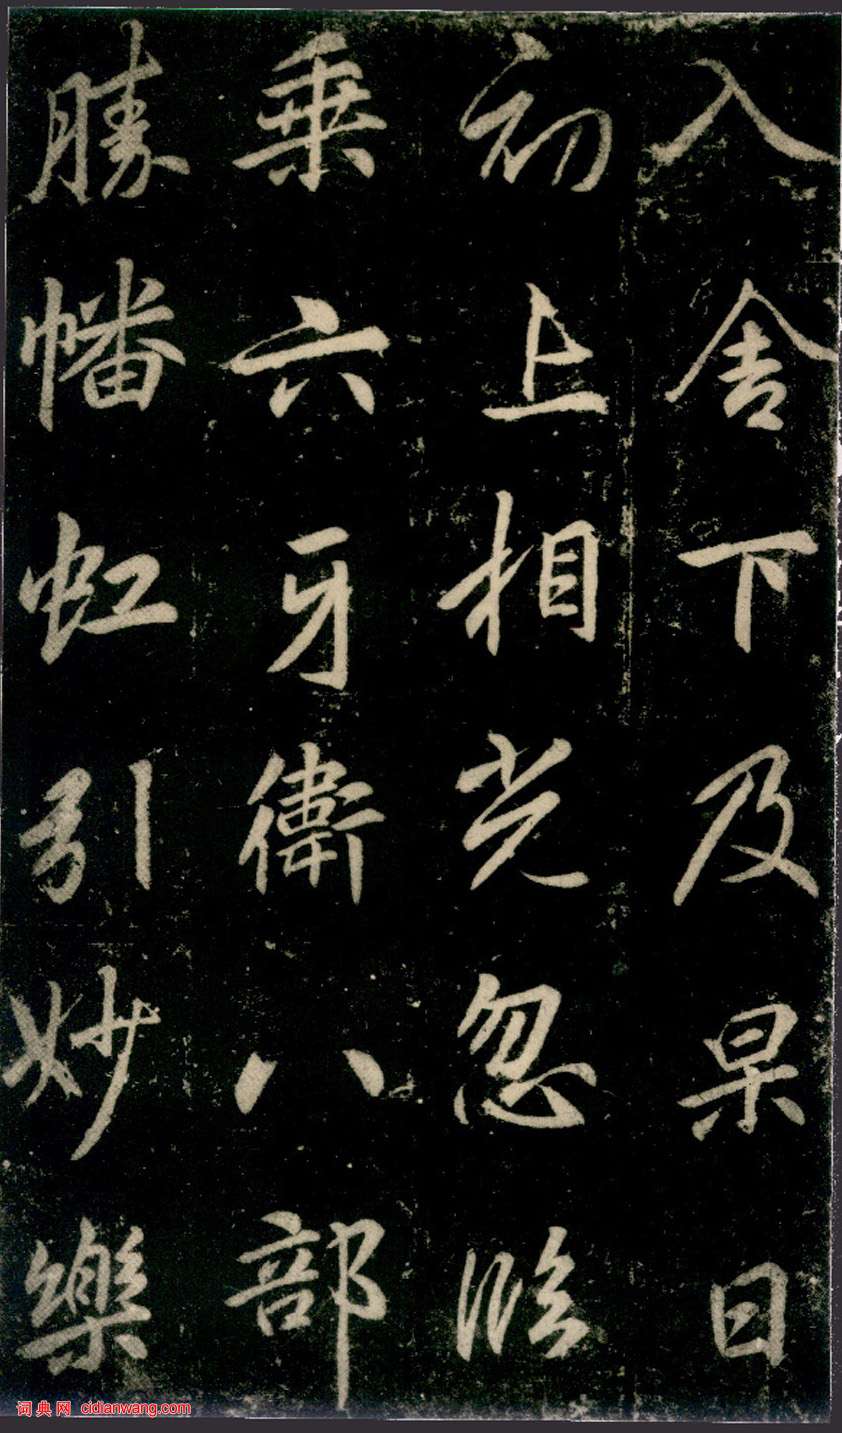 入舍下及杲日
初上相光忽臨
乗六牙衛八部
勝幡虹引妙樂
词典网 cidianwang.com